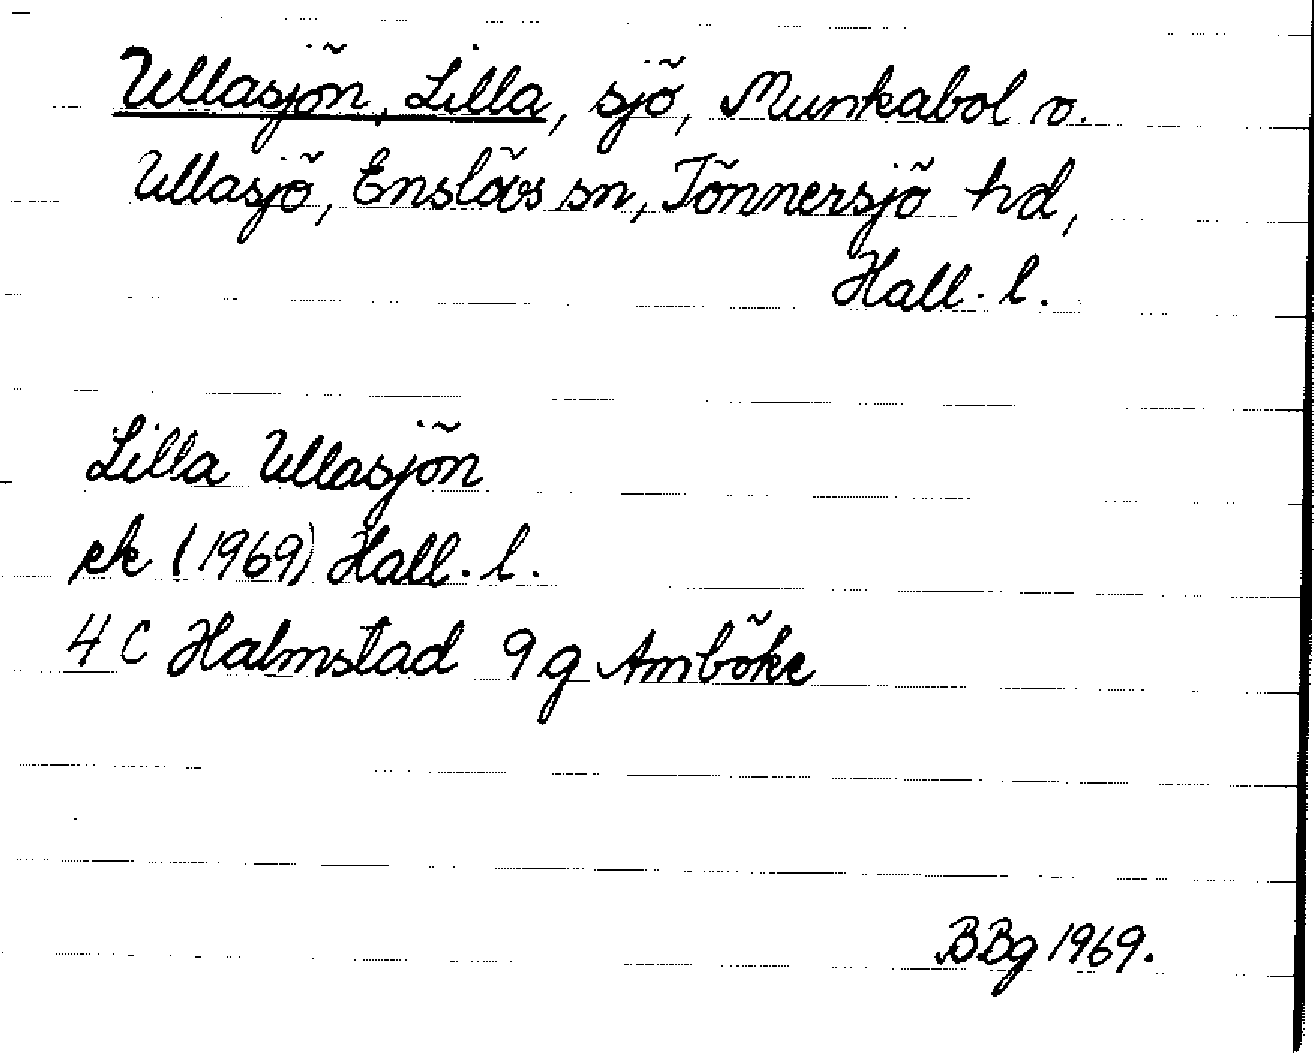 Ullasjön, Lilla, sjö, Munkabol o.
Ullasjö, Enslövs sn, Tönnersjö hd,
Hall. l.
Lilla Ullasjön
ek (1969) Hall. l.
4 C Halmstad 9 g Amböke
BBg 1969.